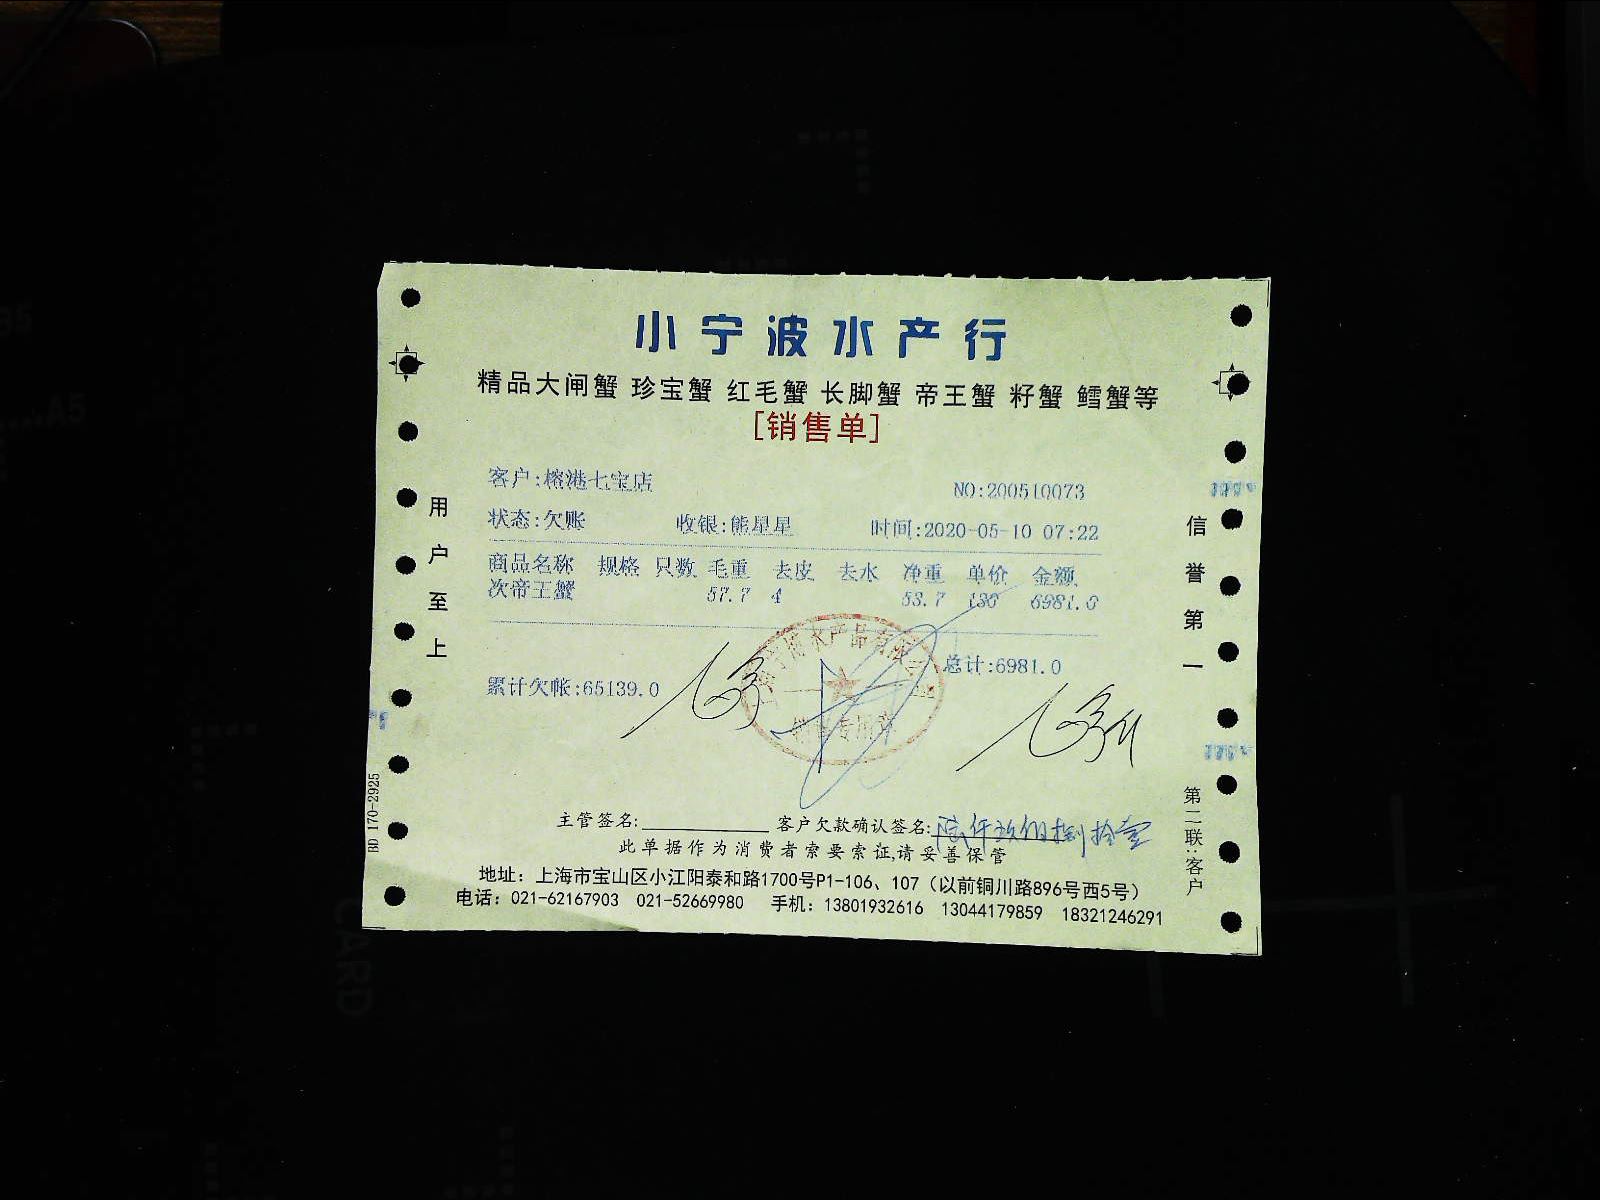 小宁波水产行
精品大闸蟹 珍宝蟹 红毛蟹 长脚蟹 帝王蟹 籽蟹 鳕蟹等
[销售单]
客户:榕港七宝店
NO:200510073
状态:欠账 收银:熊星星 时间:2020-05-10 07:22
商品名称 规格 只数 毛重 去皮 去水 净重 单价 金额
次帝王蟹 57.7 4 53.7 130 6981.0
总计:6981.0
累计欠帐:65139.0
水产品有限公司
销售专用章
主管签名: 客户欠款确认签名:陆仟玖佰捌拾壹
此单据作为消费者索要索证,请妥善保管
地址：上海市宝山区小江阳泰和路1700号P1-106、107（以前铜川路896号西5号）
电话：021-62167903 021-52669980 手机：13801932616 13044179859 18321246291
用户至上
信誉第一
第二联:客户
BD 170-2925
A5
CARD